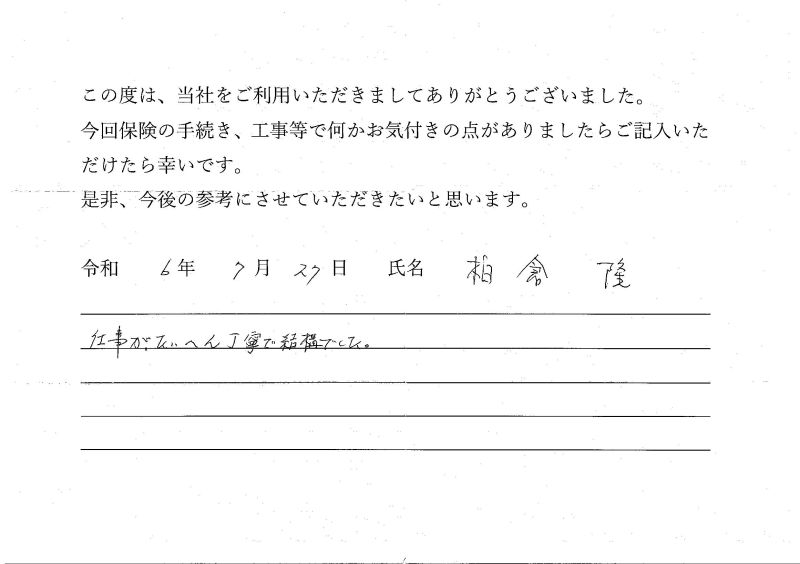 この度は、当社をご利用いただきましてありがとうございました。
今回保険の手続き、工事等で何かお気付きの点がありましたらご記入いた
だけたら幸いです。
是非、今後の参考にさせていただきたいと思います。
令和 6年 7月 27日 氏名 柏倉 隆
仕事がたいへん丁寧で結構でした。